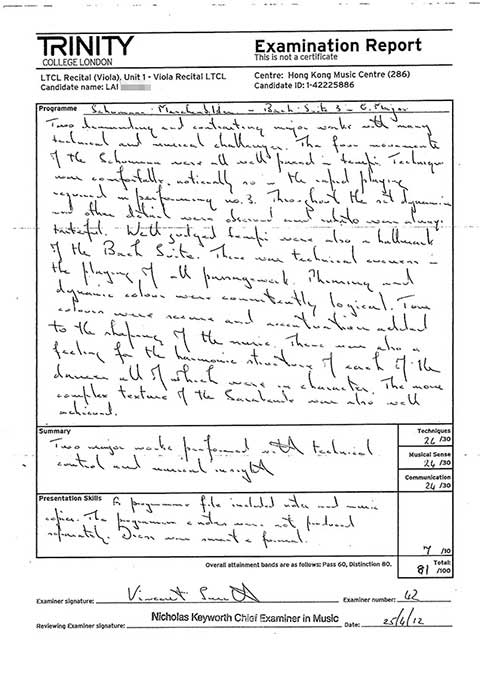 TRINITY
COLLEGE LONDON
Examination Report
This is not a certificate
LTCL Recital (Viola), Unit 1 - Viola Recital LTCL
Candidate name: LAI
Centre: Hong Kong Music Centre (286)
Candidate ID: 1-42225886
Programme
Schumann Marchenbilder - Bach Suite 3 - C Major
Two demanding and contrasting major works with many
technical and musical challenges. The four movements
of the Schumann were all well paced in tempi. Technique
was comfortable, noticeably so in the rapid playing
required in performing no.3. Throughout the set dynamic
and other detail were observed and rubato was always
tasteful. Well judged tempi were also a hallmark
of the Bach Suite. There was technical evenness in
the playing of all passagework. Phrasing and
dynamic colour were consistently logical. Tone
colours were secure and accentuation added
to the shaping of the music. There was also a
feeling for the harmonic structure of each of the
dances all of which were in character. The more
complex texture of the Sarabande was also well
achieved.
Summary
Two major works performed with technical
control and musical insight
Techniques
26/30
Musical Sense
24/30
Communication
24/30
Presentation Skills
A programme file included notes and music
copies. The programme notes were not produced
separately. Dress was smart & formal.
7/10
Overall attainment bands are as follows: Pass 60, Distinction 80.
Total:
81/100
Examiner signature:
Vincent
Examiner number: 42
Nicholas Keyworth Chief Examiner in Music
Reviewing Examiner signature:
Date: 25/4/12